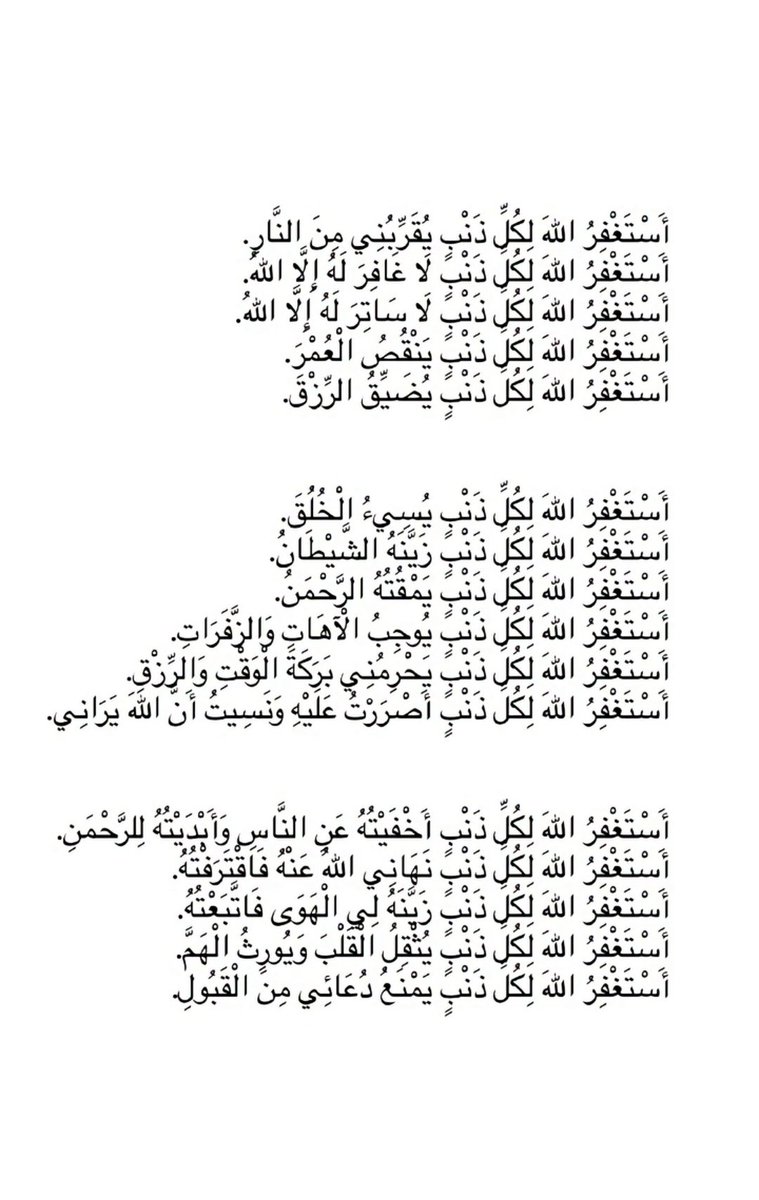 أَسْتَغْفِرُ اللهَ لِكُلِّ ذَنْبٍ يُقَرِّبُنِي مِنَ النَّارِ.
أَسْتَغْفِرُ اللهَ لِكُلِّ ذَنْبٍ لَا غَافِرَ لَهُ إِلَّا اللهُ.
أَسْتَغْفِرُ اللهَ لِكُلِّ ذَنْبٍ لَا سَاتِرَ لَهُ إِلَّا اللهُ.
أَسْتَغْفِرُ اللهَ لِكُلِّ ذَنْبٍ يَنْقُصُ الْعُمْرَ.
أَسْتَغْفِرُ اللهَ لِكُلِّ ذَنْبٍ يُضَيِّقُ الرِّزْقَ.
أَسْتَغْفِرُ اللهَ لِكُلِّ ذَنْبٍ يُسِيءُ الْخُلُقَ.
أَسْتَغْفِرُ اللهَ لِكُلِّ ذَنْبٍ زَيَّنَهُ الشَّيْطَانُ.
أَسْتَغْفِرُ اللهَ لِكُلِّ ذَنْبٍ يَمْقُتُهُ الرَّحْمَنُ.
أَسْتَغْفِرُ اللهَ لِكُلِّ ذَنْبٍ يُوجِبُ الْآهَاتِ وَالزَّفَرَاتِ.
أَسْتَغْفِرُ اللهَ لِكُلِّ ذَنْبٍ يَحْرِمُنِي بَرَكَةَ الْوَقْتِ وَالرِّزْقِ.
أَسْتَغْفِرُ اللهَ لِكُلِّ ذَنْبٍ أَصْرَرْتُ عَلَيْهِ وَنَسِيتُ أَنَّ اللهَ يَرَانِي.
أَسْتَغْفِرُ اللهَ لِكُلِّ ذَنْبٍ أَخْفَيْتُهُ عَنِ النَّاسِ وَأَبْدَيْتُهُ لِلرَّحْمَنِ.
أَسْتَغْفِرُ اللهَ لِكُلِّ ذَنْبٍ نَهَانِي اللهُ عَنْهُ فَاقْتَرَفْتُهُ.
أَسْتَغْفِرُ اللهَ لِكُلِّ ذَنْبٍ زَيَّنَهُ لِي الْهَوَى فَاتَّبَعْتُهُ.
أَسْتَغْفِرُ اللهَ لِكُلِّ ذَنْبٍ يُثْقِلُ الْقَلْبَ وَيُورِثُ الْهَمَّ.
أَسْتَغْفِرُ اللهَ لِكُلِّ ذَنْبٍ يَمْنَعُ دُعَائِي مِنَ الْقَبُولِ.